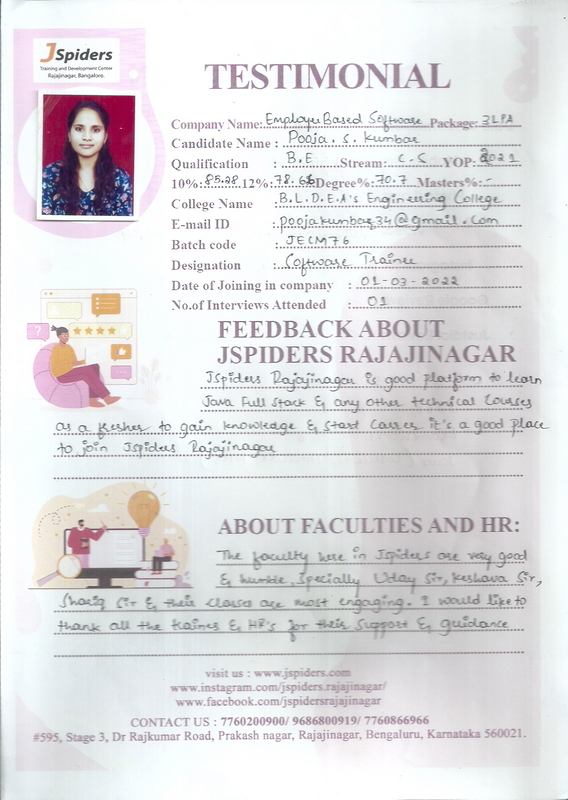 JSpiders
Training and Development Center
Rajajinagar, Bangalore.
TESTIMONIAL
Company Name: Employee Based Software Package: 3LPA
Candidate Name : Pooja . S. Kumbar
Qualification : B.E Stream: C.S YOP: 2021
10%: 85.28 12%: 78.6 Degree% 70.7 Masters%: -
College Name : B.L.D.E.A's Engineering College
E-mail ID : poojakumbar34@gmail.com
Batch code : JECM76
Designation : Software Trainee
Date of Joining in company : 01-03-2022
No.of Interviews Attended : 01
FEEDBACK ABOUT
JSPIDERS RAJAJINAGAR
JSpiders Rajajinagar is good platform to learn
Java Full Stack & any other technical Courses
as a fresher to gain knowledge & start Career it's a good place
to join Jspiders Rajajinagar
ABOUT FACULTIES AND HR:
The faculty here in Jspiders are very good
& humble, Specially Uday Sir, Keshava Sir,
Shariq Sir & their classes are most engaging. I would like to
thank all the trainers & HR's for their Support & guidance
visit us : www.jspiders.com
www.instagram.com/jspiders.rajajinagar/
www.facebook.com/jspidersrajajinagar
CONTACT US : 7760200900/ 9686800919/ 7760866966
#595, Stage 3, Dr Rajkumar Road, Prakash nagar, Rajajinagar, Bengaluru, Karnataka 560021.